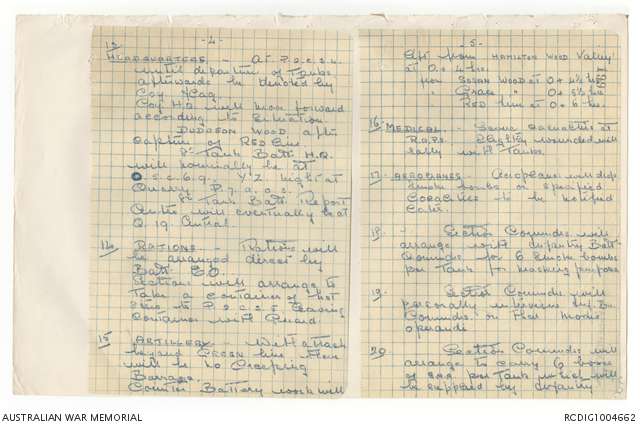 - 4 -
13
HEADQUARTERS. - At P.2.c.5.4.
until departure of Tanks
afterwards be denoted by
Coy Flag.
Coy H.Q. will move forward
according to situation
DUDGEON WOOD after
capture of RED line.
8th Tank Batt. H.Q.
will normally be at
O.5.c.6.9. Y/Z night at
Quarry P.7.a.0.5.
8th Tank Batt Report
Centre will eventually be at
Q.19. Central
14 RATIONS - Rations will
be arranged direct by
Batt. E.O.
Sections will arrange to
take a container of hot
to P.2.c.5.5 leaving
container with Guard.
15 ARTILLERY - With attack
beyond GREEN line. There
will be no Creeping
Barrage.
Counter Battery work will
- 5 -
from HAMILTON WOOD Valley
at 0 + 4 hrs.
from SUSAN WOOD at 0 + 4½ hrs
Grace " 0 + 5½ hrs
RED line at 0 + 6 hrs.
16 MEDICAL. - Some casualties at
R.A.P's. Slightly wounded will
rally with Tanks.
17 AEROPLANES - Aeroplanes will drop
smoke bombs on specified
localities to be notified
later.
18 Section Commdrs. will
arrange with Infantry Batt
Commdrs. for 6 smoke bombs
per Tank for masking purpose
19 Section Commdrs will
personally interview Inf. Bn.
Commdrs. on their modus
operandi
20 Section Commdrs will
arrange to carry 6 boxes
of SAA per Tank which will
be supplied by Infantry
AUSTRALIAN WAR MEMORIAL
RCDIG1004662